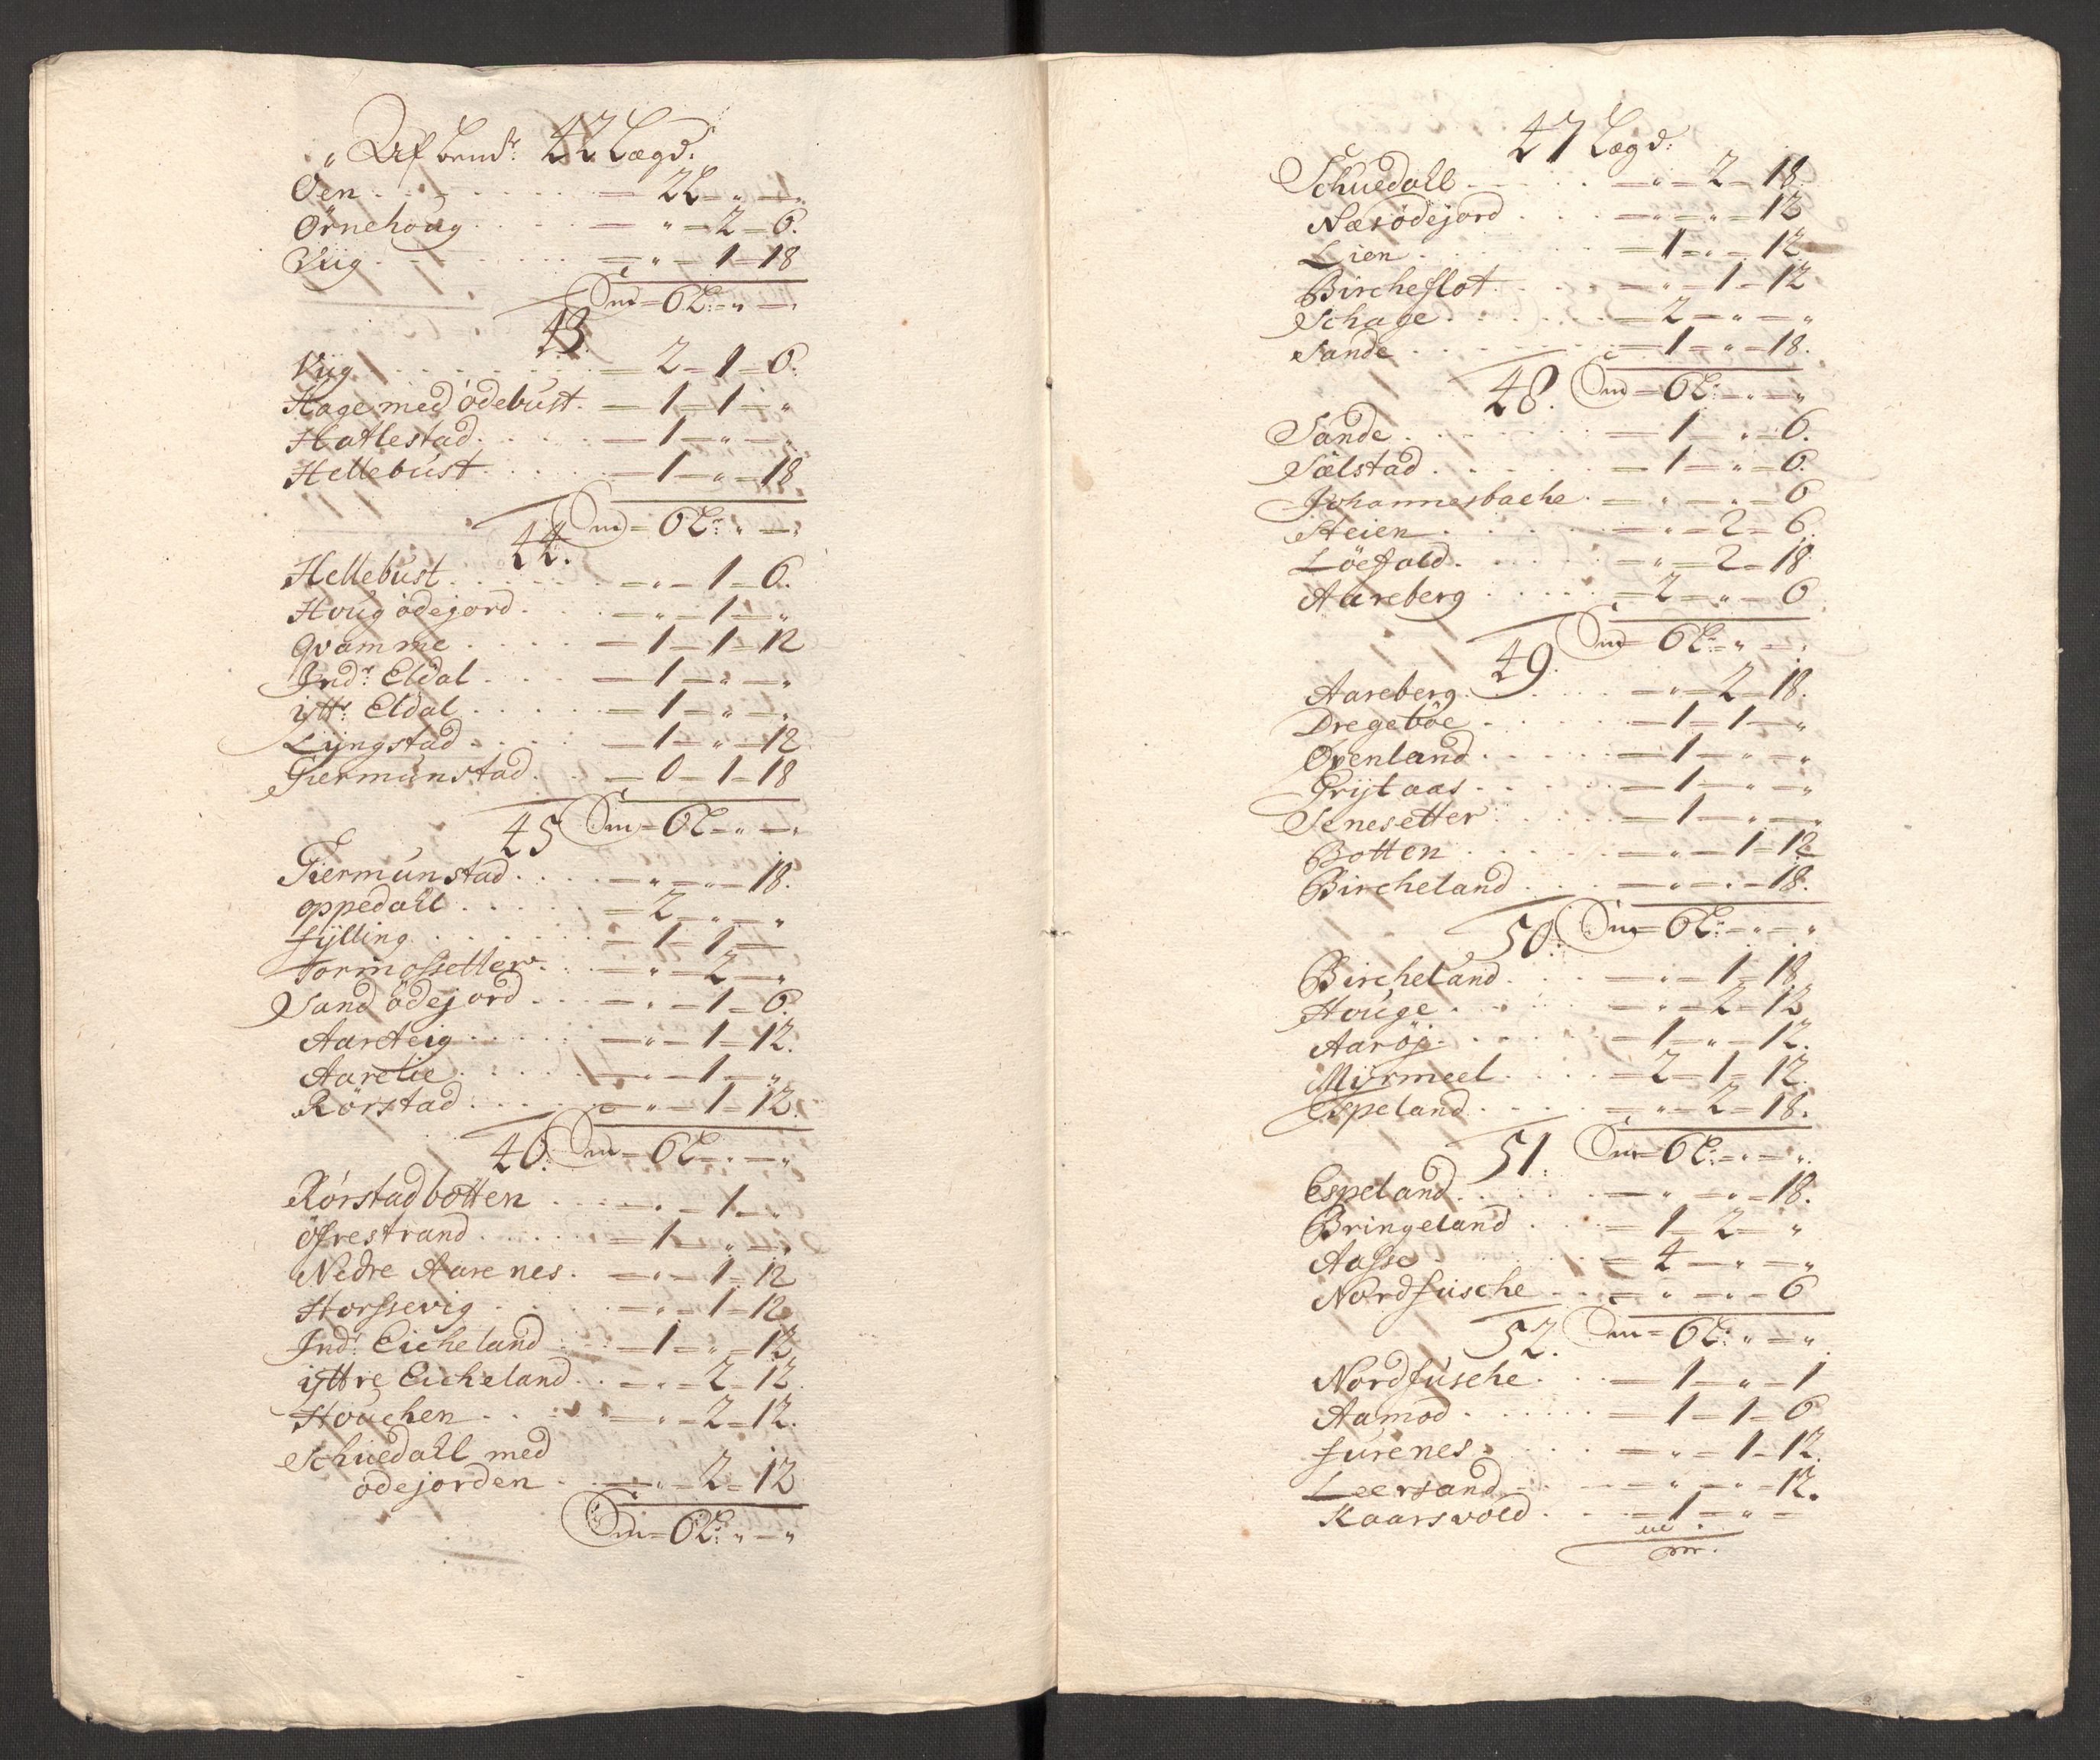 Af bemdt: 42 Lægd:
Øen . . . . = 2L = „ = „
Örnehoug . . . — „ = 2 = 6.
Viig . . . . = „ = 1 = 18
Sum = 6L: = „ = „
43.
Viig . . . . = 2 = 1 = 6.
Hage med ödebust . = 1 = 1 = „
Hatlestad . . . = 1 = „ = „
Hellebust . . . = 1 = „ = 18
Sum = 6L: „ = „
44.
Hellebust . . . = „ = 1 = 6.
Houg ödejord . . = „ = 1 = „
Qvamme . . . = 1 = 1 = 12
Indr: Eldal . . . = 1 = „ = „
ijttr: Eldal . . . = 1 = „ = „
Lijngstad . . . = 1 = „ = 12
Giermunstad . . = 0 = 1 = 18
Sum = 6L = „ = „
45
Giermunstad . . . = „ = „ = 18.
oppedall . . . = 2 = „ = „
fijlling . . . = 1 = 1 =
Tormossetter . . = „ = 2 = „
Sand ödejord . . = „ = 1 = 6.
Aarsteig . . . = „ = 1 = 12.
Aarelie . . . = „ = 1 = „
Rörstad . . . = „ = 1 = 12.
46: Sum = 6L = „ = „
Rörstadbotten . . . = „ = 1 = „
öfrestrand . . . = 1 = „ = „
Nedre Aarenes . = „ = 1 = 12
Horssevig . . . = „ = 1 = 12
Indr: Eicheland . . = 1 = „ = 12
ijttre Eicheland . . = „ = 2 = 12
Houchen . . . = „ = 2 = 12.
Schuedall med
ödejorden . . = „ = 2 = 12
Sum = 6L: „ = „
47 Lægd:
Schuedall . . . = „ = 2 = 18.
Næsödejord . . . = „ = „ = 12
Lien . . . . = 1 = „ = 12
Bircheflot . . . = „ = 1 = 12
Schage . . . = 2 = „ = „
Sande . . . = 1 = „ = 18.
48. Sum = 6L: = „ = „
Sande . . . = 1 = „ = 6.
Sælstad . . . = 1 = „ = 6.
Johannesbache . = „ = „ = 6
Heien . . . = „ = 2 = 6.
Löefald . . . = „ = 2 = 18.
Aareberg . . . = 2 = „ = 6
Sum = 6L: = „ = „
49.
Aareberg . . . = „ = 2 = 18.
Dregeböe . . . = 1 = 1 = „
Ovenland . . . = 1 = „ = „
Grijtaas . . . = 1 = „ = „
Senesetter . . . = 1 = „ = „
Botten . . . = „ = 1 = 12
Bircheland . . . = „ = „ = 18.
50: Sum = 6L: = „ = „
Bircheland . . . = „ = 1 = 18
Houge . . . = „ = 2 = 12
Aaröj . . . = 1 = „ = 12.
Mijrmeel . . . = 2 = 1 = 12.
Espeland . . . = „ = 2 = 18.
51: Sum = 6L: = „ = „
Espeland . . . = „ = „ = 18.
Bringeland . . . = 1 = 2 = „
Aasse . . . = 4 = „ = „
Nordfusche . . . = „ = „ = 6
52. Sum = 6L: „ = „
Nordfusche . . . = 1 = „ = 1
Aamod . . . = 1 = 1 = 6
furenes . . . = „ = 1 = 12
Leersand . . . = „ = „ = 12.
Kaarsvold . . . = 1 = „ =